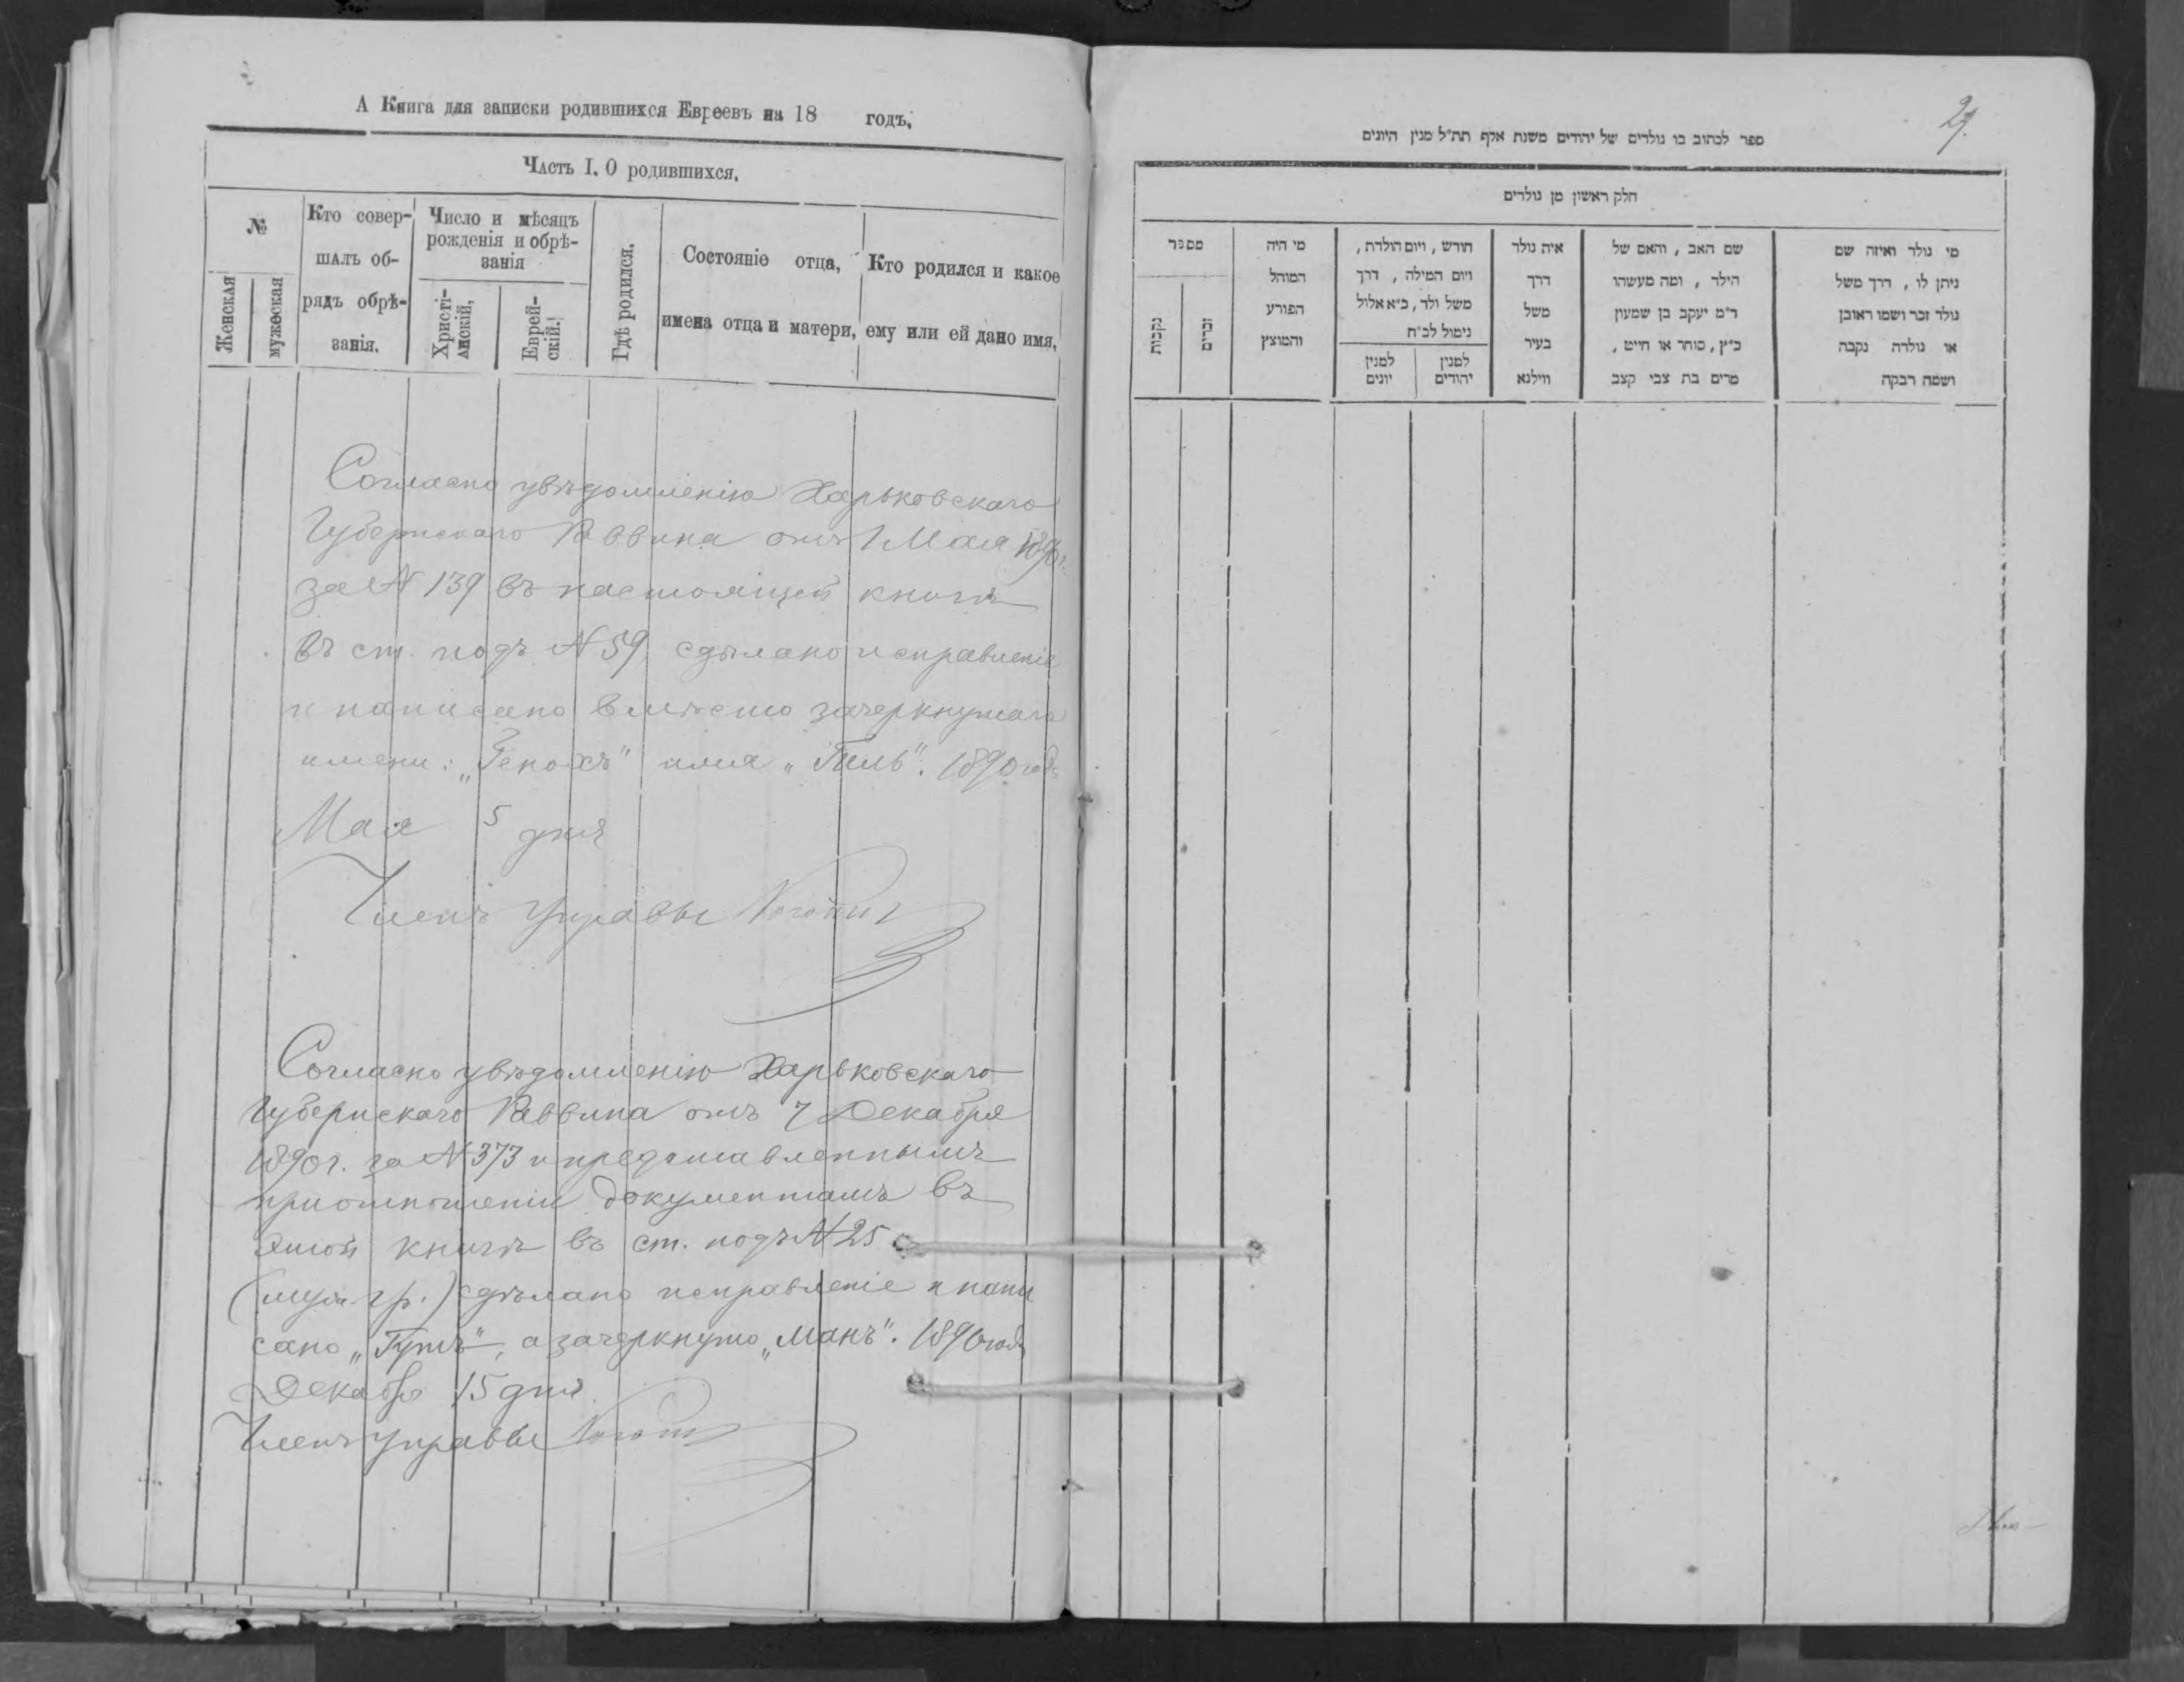 А Книга для записки родившихся Евреевъ на 18 годъ.
Часть I. О родившихся.
№
Женская
мужеская
Кто совер-
шалъ об-
рядъ обрѣ-
занія.
Число и мѣсяцъ
рожденія и обрѣ-
занія
Христі-
анскій,
Еврей-
скій.
Гдѣ родился.
Состояніе отца,
имена отца и матери,
Кто родился и какое
ему или ей дано имя,
Согласно увѣдомленію Харьковскаго
Губернскаго Раввина отъ 1 Мая 1890 г.
за N 139 въ настоящей книгѣ
въ ст. подъ N 59, сдѣлано исправленіе
и написано вмѣсто зачеркнутаго
имени: „Генохъ" имя „Гиль". 1890 года
Мая 5 дня
Членъ Управы
Согласно увѣдомленію Харьковскаго
Губернскаго Раввина отъ 7 Декабря
1890 г. за N 373 и представленнымъ
при отношеніи документамъ въ
этой книгѣ въ ст. подъ N 25
(муж. гр.) сдѣлано исправленіе и напи
сано „Гутъ", а зачеркнуто „Манъ". 1890 года
Декабря 15 дня.
Членъ Управы
29.
ספר לכתוב בו נולדים של יהודים משנת אלף תת"ל מנין היונים
חלק ראשון מן נולדים
מספר
נקבות
זכרים
מי היה
המוהל
הפורע
והמוצץ
חודש, ויום הולדת,
ויום המילה, דרך
משל ולד, כ"א אלול
נימול לכ"ח
למנין
יונים
למנין
יהודים
איה נולד
דרך
משל
בעיר
ווילנא
שם האב, והאם של
הילד, ומה מעשהו
ר"מ יעקב בן שמעון
כ"ץ, סוחר או חייט,
מרים בת צבי קצב
מי נולד ואיזה שם
ניתן לו, דרך משל
נולד זכר ושמו ראובן
או נולדה נקבה
ושמה רבקה